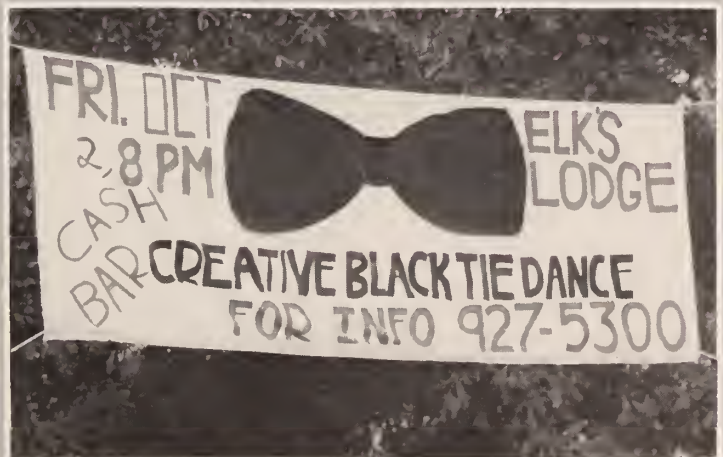 FRI. OCT
2, 8 PM
CASH
BAR
ELK'S
LODGE
CREATIVE BLACK TIE DANCE
FOR INFO 927-5300